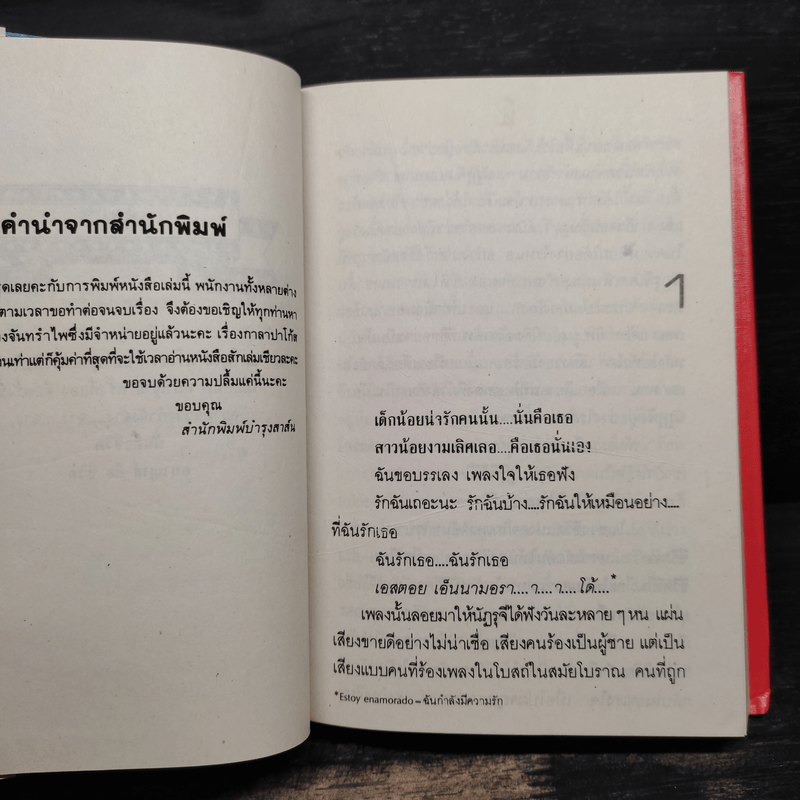 คำนำจากสำนักพิมพ์
ดเลยคะกับการพิมพ์หนังสือเล่มนี้ พนักงานทั้งหลายต่าง
ตามเวลาขอทำต่อจนจบเรื่อง จึงต้องขอเชิญให้ทุกท่านหา
งจันทรำไพซึ่งมีจำหน่ายอยู่แล้วนะคะ เรื่องกาลาปาโก้ส
านเท่าแต่ก็คุ้มค่าที่สุดที่จะใช้เวลาอ่านหนังสือสักเล่มเชียวละคะ
ขอจบด้วยความปลื้มแค่นี้นะคะ
ขอบคุณ
สำนักพิมพ์บำรุงสาส์น
1
เด็กน้อยน่ารักคนนั้น....นั่นคือเธอ
สาวน้อยงามเลิศเลอ....คือเธอนั่นเอง
ฉันขอบรรเลง เพลงใจให้เธอฟัง
รักฉันเถอะนะ รักฉันบ้าง....รักฉันให้เหมือนอย่าง....
ที่ฉันรักเธอ
ฉันรักเธอ....ฉันรักเธอ
เอสตอย เอ็นนามอรา....า....า....โด้....*
เพลงนั้นลอยมาให้นัฏรุจีได้ฟังวันละหลาย ๆ หน แผ่น
เสียงขายดีอย่างไม่น่าเชื่อ เสียงคนร้องเป็นผู้ชาย แต่เป็น
เสียงแบบคนที่ร้องเพลงในโบสถ์ในสมัยโบราณ คนที่ถูก
*Estoy enamorado = ฉันกำลังมีความรัก